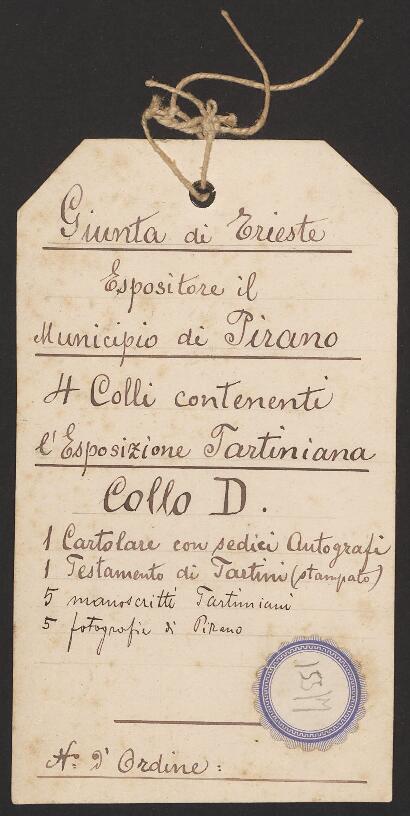 Giunta di Trieste
Espositore il
Municipio di Pirano
4 Colli contenenti
l'Esposizione Tartiniana
Collo D.
1 Cartolare con sedici Autografi
1 Testamento di Tartini (stampato)
5 manoscritti Tartiniani
5 fotografie di Pirano
No. d'Ordine: